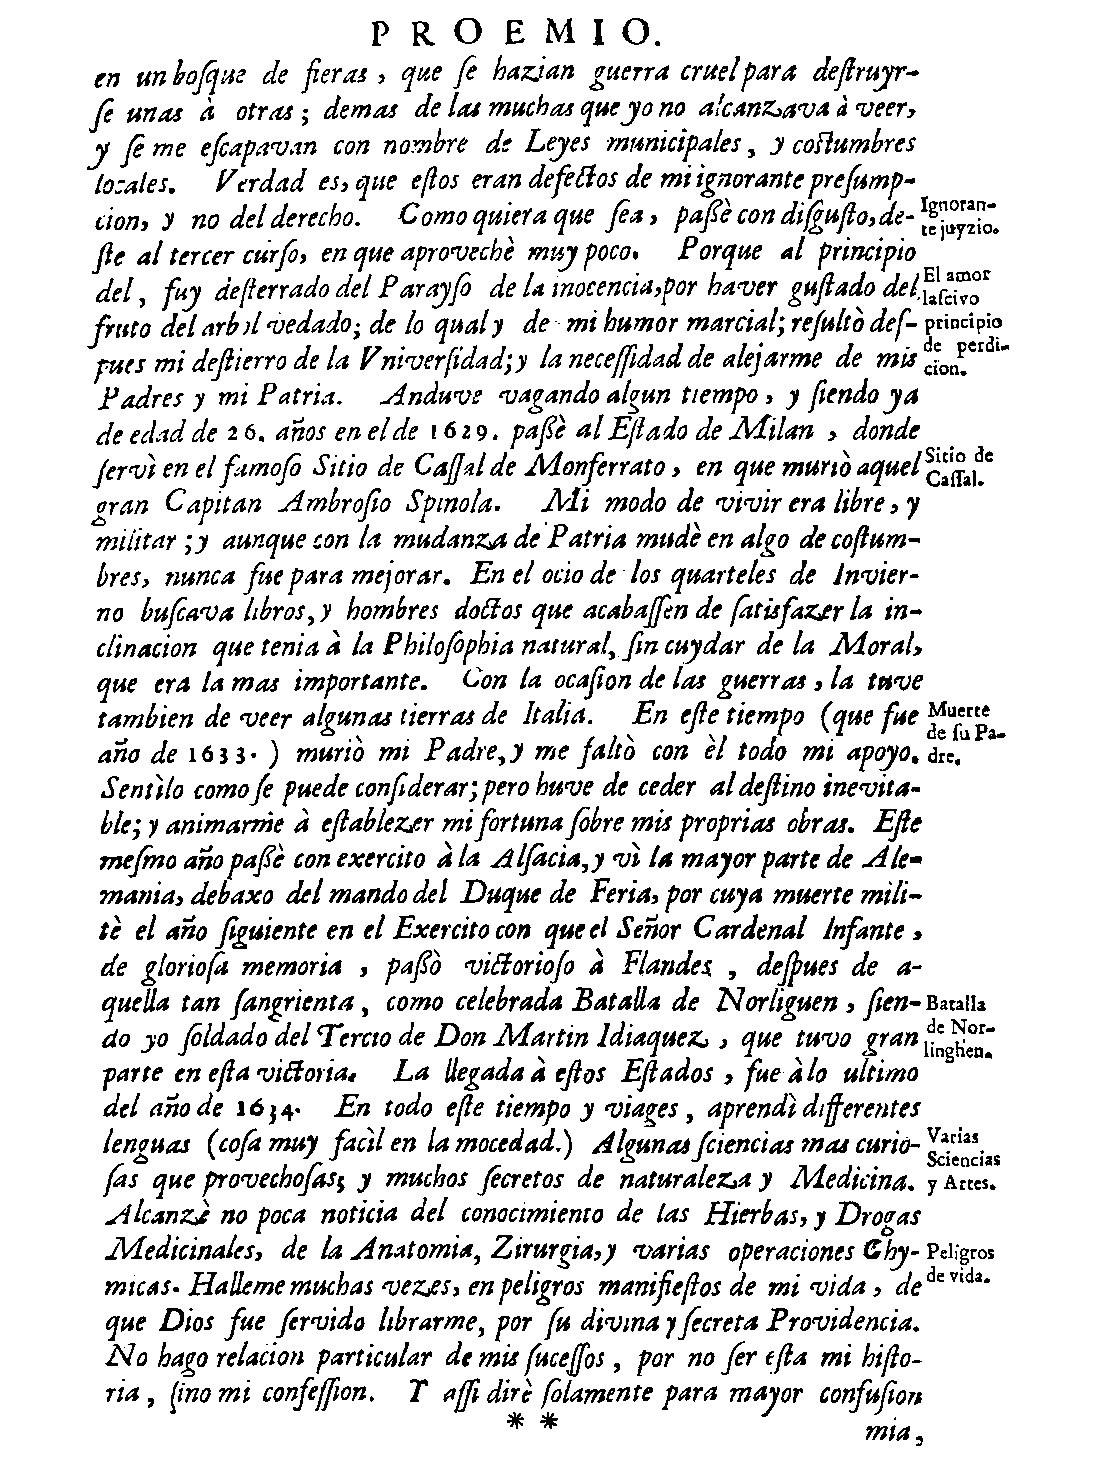 PROEMIO.
en un bosque de fieras, que se hazian guerra cruel para destruyr-
se unas à otras; demas de las muchas que yo no alcanzava à veer,
y se me escapavan con nombre de Leyes municipales, y costumbres
locales. Verdad es, que estos eran defectos de mi ignorante presump-
cion, y no del derecho. Como quiera que sea, passè con disgusto, de-
ste al tercer curso, en que aprovechè muy poco. Porque al principio
del, fuy desterrado del Parayso de la inocencia, por haver gustado del
fruto del arbol vedado; de lo qual y de mi humor marcial; resultò des-
pues mi destierro de la Vniversidad; y la necessidad de alejarme de mis
Padres y mi Patria. Anduve vagando algun tiempo, y siendo ya
de edad de 26. años en el de 1629. passè al Estado de Milan, donde
servì en el famoso Sitio de Cassal de Monferrato, en que muriò aquel
gran Capitan Ambrosio Spinola. Mi modo de vivir era libre, y
militar; y aunque con la mudanza de Patria mudè en algo de costum-
bres, nunca fue para mejorar. En el ocio de los quarteles de Invier-
no buscava libros, y hombres doctos que acabassen de satisfazer la in-
clinacion que tenia à la Philosophia natural, sin cuydar de la Moral,
que era la mas importante. Con la ocasion de las guerras, la tuve
tambien de veer algunas tierras de Italia. En este tiempo (que fue
año de 1633.) muriò mi Padre, y me faltò con èl todo mi apoyo.
Sentìlo como se puede considerar; pero huve de ceder al destino inevita-
ble; y animarme à establezer mi fortuna sobre mis proprias obras. Este
mesmo año passè con exercito à la Alsacia, y vì la mayor parte de Ale-
mania, debaxo del mando del Duque de Feria, por cuya muerte mili-
tè el año siguiente en el Exercito con que el Señor Cardenal Infante,
de gloriosa memoria, passò victorioso à Flandes, despues de a-
quella tan sangrienta, como celebrada Batalla de Norliguen, sien-
do yo soldado del Tercio de Don Martin Idiaquez, que tuvo gran
parte en esta victoria. La llegada à estos Estados, fue à lo ultimo
del año de 1634. En todo este tiempo y viages, aprendì differentes
lenguas (cosa muy facìl en la mocedad.) Algunas sciencias mas curio-
sas que provechosas; y muchos secretos de naturaleza y Medicina.
Alcanzè no poca noticia del conocimiento de las Hierbas, y Drogas
Medicinales, de la Anatomia, Zirurgia, y varias operaciones Chy-
micas. Halleme muchas vezes, en peligros manifiestos de mi vida, de
que Dios fue servido librarme, por su divina y secreta Providencia.
No hago relacion particular de mis sucessos, por no ser esta mi histo-
ria, sino mi confession. Y assi dirè solamente para mayor confusion
* *
mia,
Ignoran-
te juyzio.
El amor
lascivo
principio
de perdi-
cion.
Sitio de
Cassal.
Muerte
de su Pa-
dre.
Batalla
de Nor-
linghen.
Varias
Sciencias
y Artes.
Peligros
de vida.